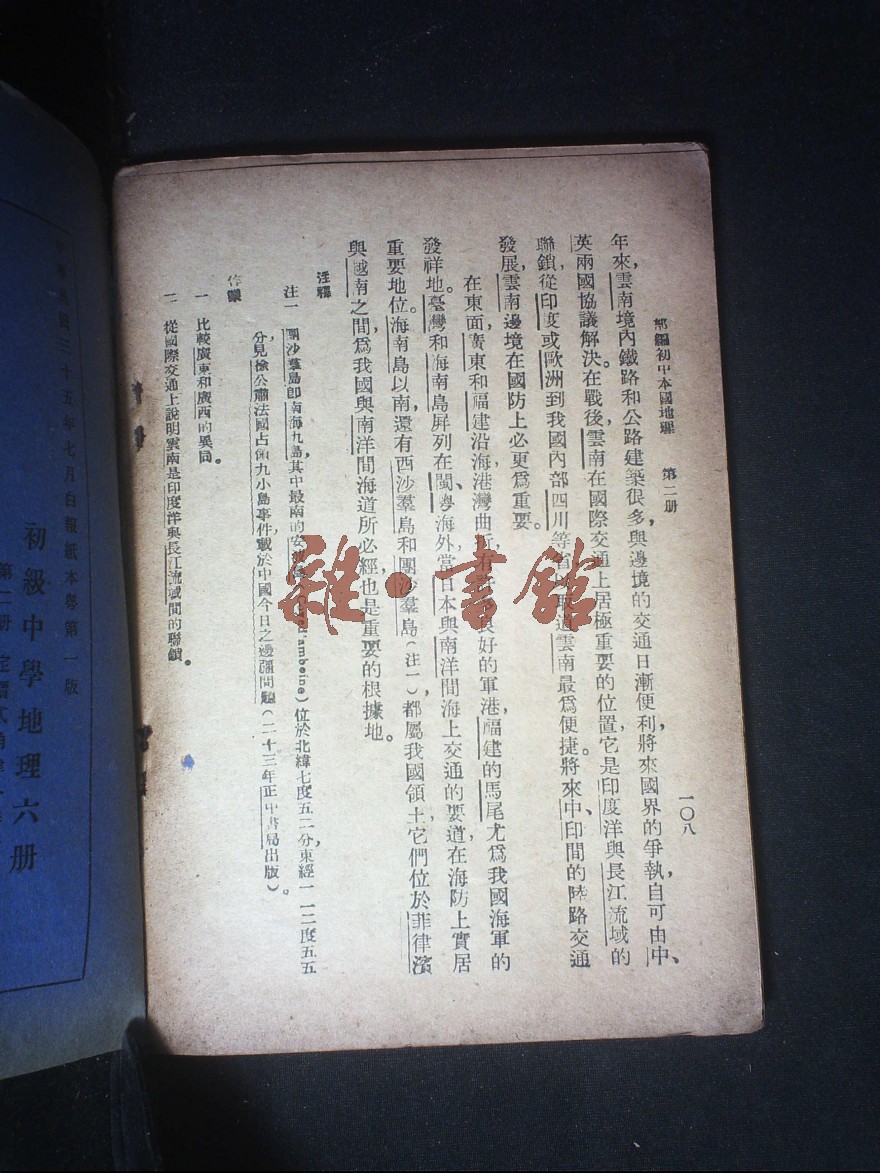 部編初中本國地理　第二册
一〇八
年來，雲南境內鐵路和公路建築很多，與邊境的交通日漸便利，將來國界的爭執，自可由中、
英兩國協議解决。在戰後，雲南在國際交通上居極重要的位置，它是印度洋與長江流域的
聯鎖，從印度或歐洲到我國內部四川等省取道雲南最爲便捷，將來中、印間的陸路交通
發展，雲南邊境在國防上必更爲重要。
在東面，廣東和福建沿海，港灣曲折，良好的軍港，福建的馬尾尤爲我國海軍的
發祥地。臺灣和海南島屏列在閩、粵海外，當日本與南洋間海上交通的要道，在海防上實居
重要地位。海南島以南，還有西沙羣島和團沙羣島（注一），都屬我國領土，它們位於菲律濱
與越南之間，爲我國與南洋間海道所必經，也是重要的根據地。
注釋
注一　團沙羣島卽南海九島，其中最南的安 amboine）位於北緯七度五二分，東經一一二度五五
分，見徐公肅法國占領九小島事件，載於中國今日之邊疆問題（二十三年正中書局出版）。
作業
一　比較廣東和廣西的異同。
二　從國際交通上說明雲南是印度洋與長江流域間的聯鎖。
雜·書館
三十五年七月白報紙本粵第一版
初級中學地理六册
第二册　定價